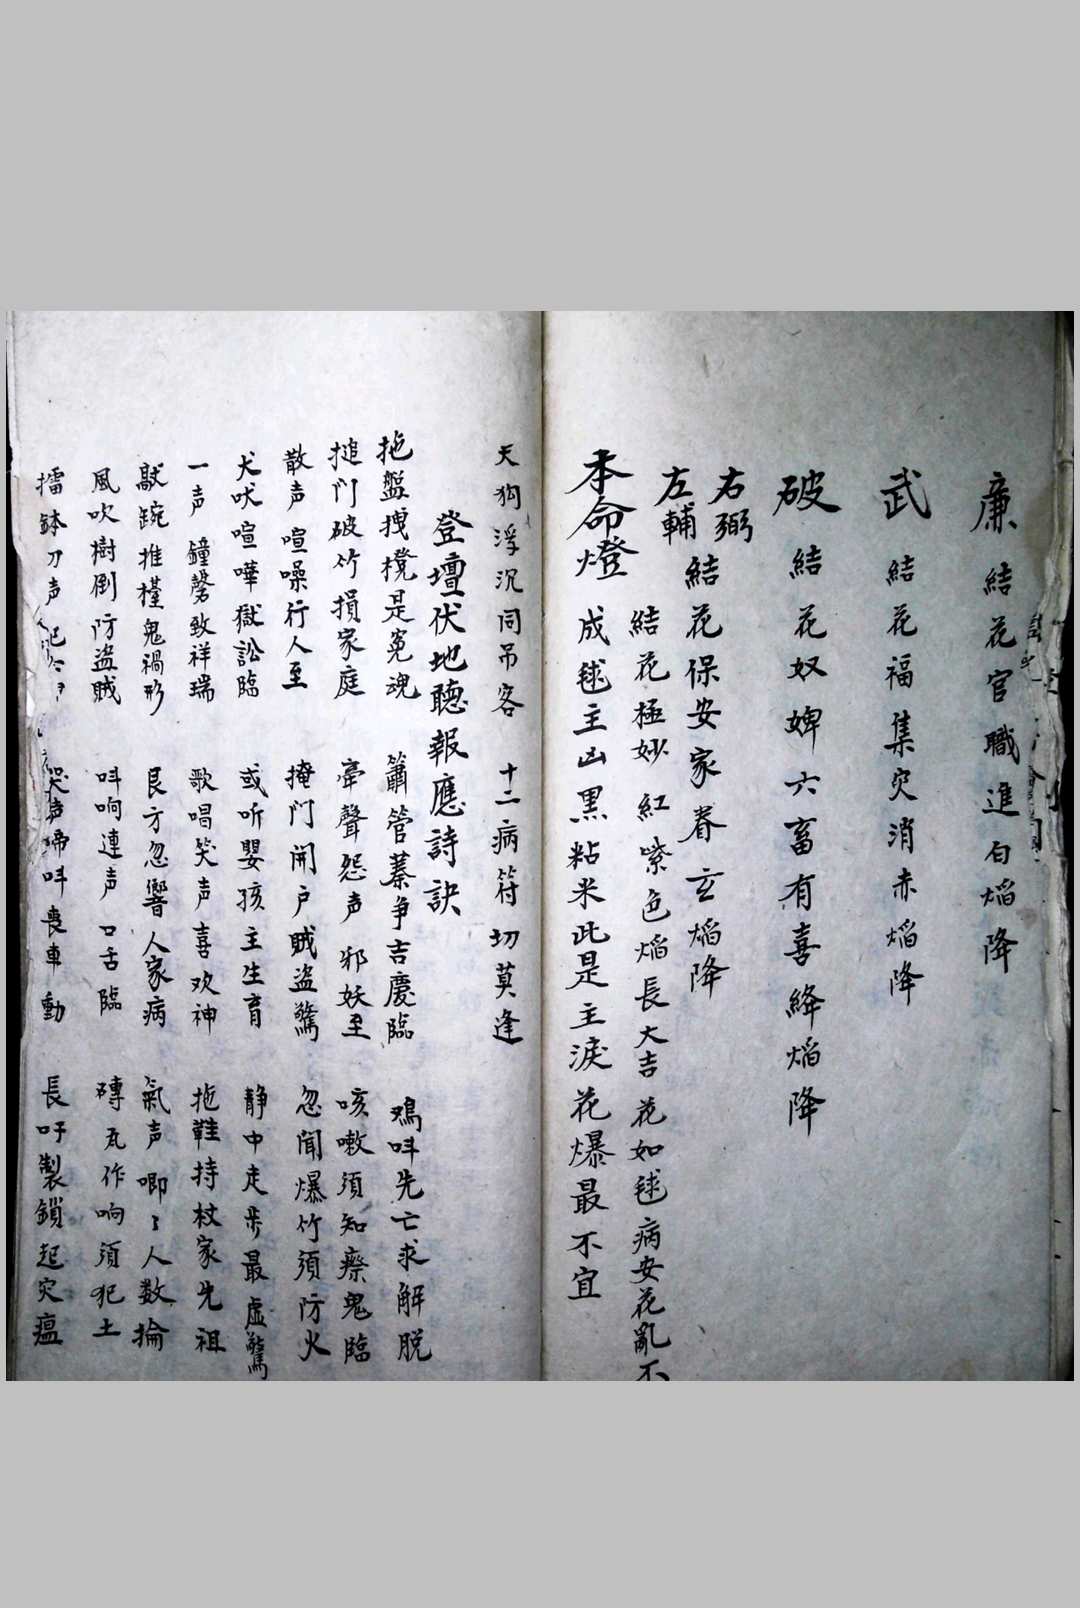 廉 結花官職進白焰降
武 結花福集灾消赤焰降
破 結花奴婢六畜有喜絳焰降
右弼
左輔 結花保安家眷玄焰降
本命燈 結花極妙 紅紫色焰長大吉 花如毬病安花亂不
成毬主凶黑粘米此是主淚花爆最不宜
天狗浮沉同吊客 十二病符切莫逢
登壇伏地聽報應詩訣
拖盤拽櫈是冤魂 簫管蓁争吉慶臨 鳮呌先亡求解脱
搥门破竹損家庭 牽聲怨声邪妖至 咳嗽須知瘵鬼臨
散声喧噪行人至 掩门開户賊盗驚 忽聞爆竹須防火
犬吠喧嘩獄訟臨 或听嬰孩主生育 静中走步最虚驚
一声鐘磬致祥瑞 歌唱笑声喜欢神 拖鞋持杖家先祖
敲踠推槿鬼禍形 艮方忽響人家病 氣声唧々人数掄
風吹樹倒防盗賊 呌响連声口舌臨 磚瓦作响須犯土
擂鉢刀声 哭声啼呌喪車動 長吁製鎖起灾瘟